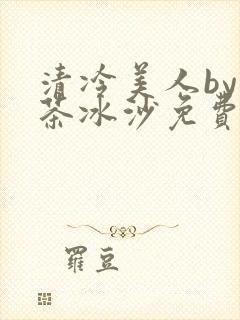 清冷美人by
茶冰沙免費
羅豆